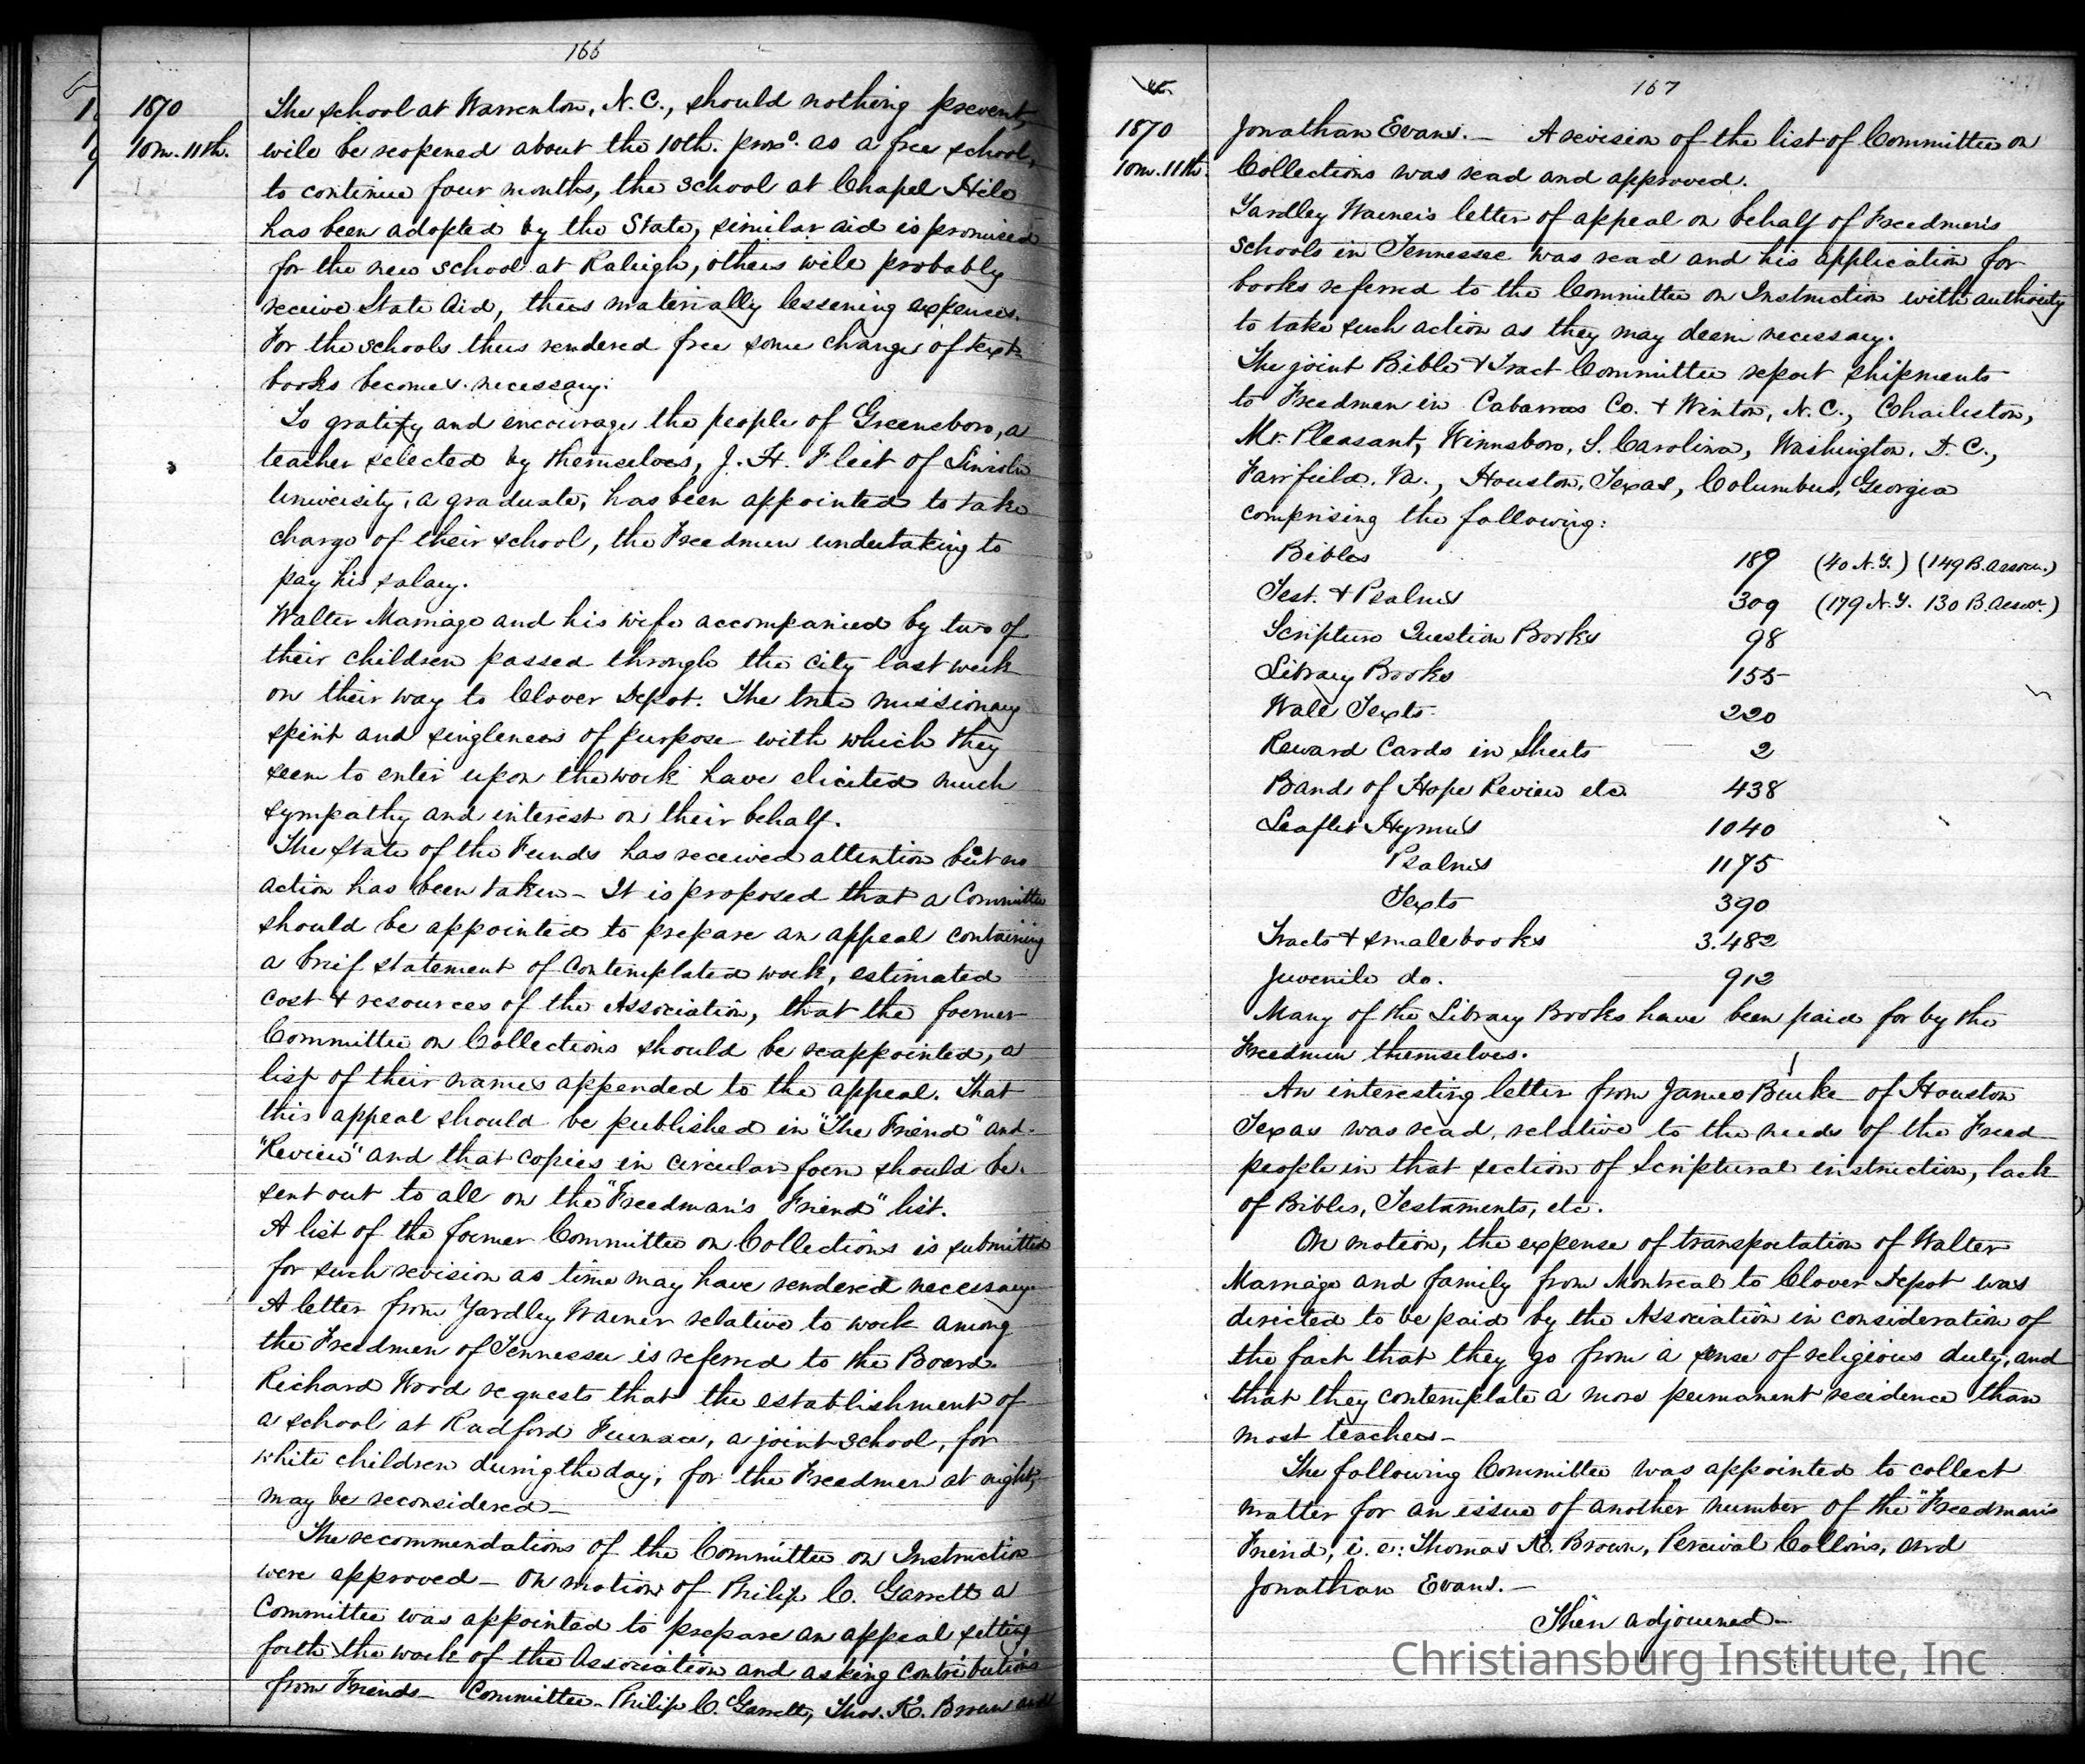 166
1870
10m. 11th.
The school at Warrenton, N.C., should nothing prevent,
will be reopened about the 10th. proxo. as a free school,
to continue four months, the school at Chapel Hill
has been adopted by the State, similar aid is promised
for the new school at Raleigh, others will probably
receive State Aid, thus materially lessening expenses.
For the schools thus rendered free some change of text
books becomes necessary.
To gratify and encourage the people of Greensboro, a
teacher selected by themselves, J. H. Fleet of Lincoln
University, a graduate, has been appointed to take
charge of their school, the Freedmen undertaking to
pay his salary.
Walter Marriage and his wife accompanied by two of
their children passed through the city last week
on their way to Clover Depot. The true missionary
spirit and singleness of purpose with which they
seem to enter upon the work have elicited much
sympathy and interest on their behalf.
The State of the Funds has received attention but no
action has been taken - It is proposed that a Committee
should be appointed to prepare an appeal containing
a brief statement of contemplated work, estimated
cost & resources of the Association, that the former
Committee on Collections should be reappointed, a
list of their names appended to the appeal. That
this appeal should be published in "The Friend" and
"Review" and that copies in circular form should be
sent out to all on the "Freedman's Friend" list.
A list of the former Committee on Collections is submitted
for such revision as time may have rendered necessary
A letter from Yardley Warner relative to work among
the Freedmen of Tennessee is referred to the Board.
Richard Wood requests that the establishment of
a school at Radford Furnace, a joint school, for
white children during the day, for the Freedmen at night,
may be reconsidered -
The recommendations of the Committee on Instruction
were approved - On motion of Philip C. Garrett a
Committee was appointed to prepare an appeal setting
forth the work of the Association and asking contributions
from Friends - Committee - Philip C. Garrett, Thos. K. Brown and
167
1870
10m. 11th.
Jonathan Evans. - A revision of the list of Committee on
Collections was read and approved.
Yardley Warner's letter of appeal on behalf of Freedmen's
schools in Tennessee was read and his application for
books referred to the Committee on Instruction with authority
to take such action as they may deem necessary.
The joint Bible & Tract Committee report shipments
to Freedmen in Cabarras Co. & Winton, N.C., Charleston,
Mt. Pleasant, Winnsboro, S. Carolina, Washington, D.C.,
Fairfield, Va., Houston, Texas, Columbus, Georgia
comprising the following:
Bibles 189 (40 N.Y.) (149 B. Assocn.)
Test. & Psalms 309 (179 N.Y. 130 B. Assocn.)
Scripture Question Books 98
Library Books 155
Wall Texts 220
Reward Cards in Sheets 2
Bands of Hope Review etc. 438
Leaflet Hymns 1040
Psalms 1175
Texts 390
Tracts & small books 3.482
Juvenile do. 912
Many of the Library Books have been paid for by the
Freedmen themselves.
An interesting letter from James Burke of Houston
Texas was read, relative to the needs of the Freed
people in that section of Scriptural instruction, lack
of Bibles, Testaments, etc.
On motion, the expense of transportation of Walter
Marriage and family from Montreal to Clover Depot was
directed to be paid by the Association in consideration of
the fact that they go from a sense of religious duty, and
that they contemplate a more permanent residence than
most teachers -
The following Committee was appointed to collect
matter for an issue of another number of the "Freedman's
Friend, i.e.: Thomas K. Brown, Percival Collins, and
Jonathan Evans. -
Then adjourned -
Christiansburg Institute, Inc